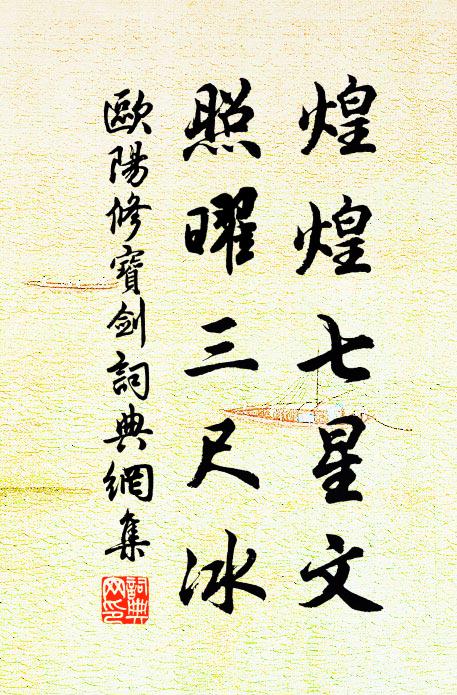 煌煌七星文
照曜三尺冰
歐陽修寶劍詞典網集
詞典
网印